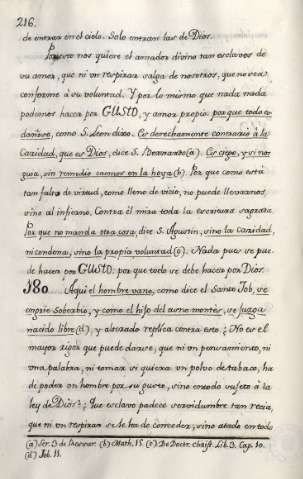 216.
de entrar en el cielo. Solo entran las de Dios.
Porque nos quiere el amador divino tan esclavos de
su amor, que ni un respirar salga de nosotros, que no sea
conforme à su voluntad. Y por lo mismo que nada nada
podemos hacer por GUSTO, y amor propio: porque todo es
dañoso, como S. Leon dixo. Es derechamente contrario à la
Caridad, que es Dios, dice S. Bernardo(a). Es ciego, y si nos
guia, sin remedio caemos en la hoya(b). Por que como está
tan falto de virtud, como lleno de vicio, no puede llevarnos,
sino al infierno. Contra él mira toda la escritura sagrada.
Por que no manda otra cosa, dice S. Agustin, sino la Caridad,
ni condena, sino la propia voluntad(c). Nada pues se pue
de hacer por GUSTO: por que todo se debe hacer por Dios.
180. Aqui el hombre vano, como dice el Santo Job, se
engrie soberbio, y como el hijo del asno montes, se juzga
nacido libre(d), y alterado replica contra esto: ¿No es el
mayor rigor que puede darse, que ni un pensamiento, ni
una palabra, ni tomar si quiera un polvo de tabaco, ha
de poder un hombre por su gusto, sino en todo sujeto à la
ley de Dios? ¿Que esclavo padece servidumbre tan recia,
que ni un respirar se le ha de conceder, sino atado en todo
(a) Ser. 3 de Resurr. (b) Math. 15. (c) De Doctr. christ. Lib. 3. Cap. 10.
(d) Job. 11.